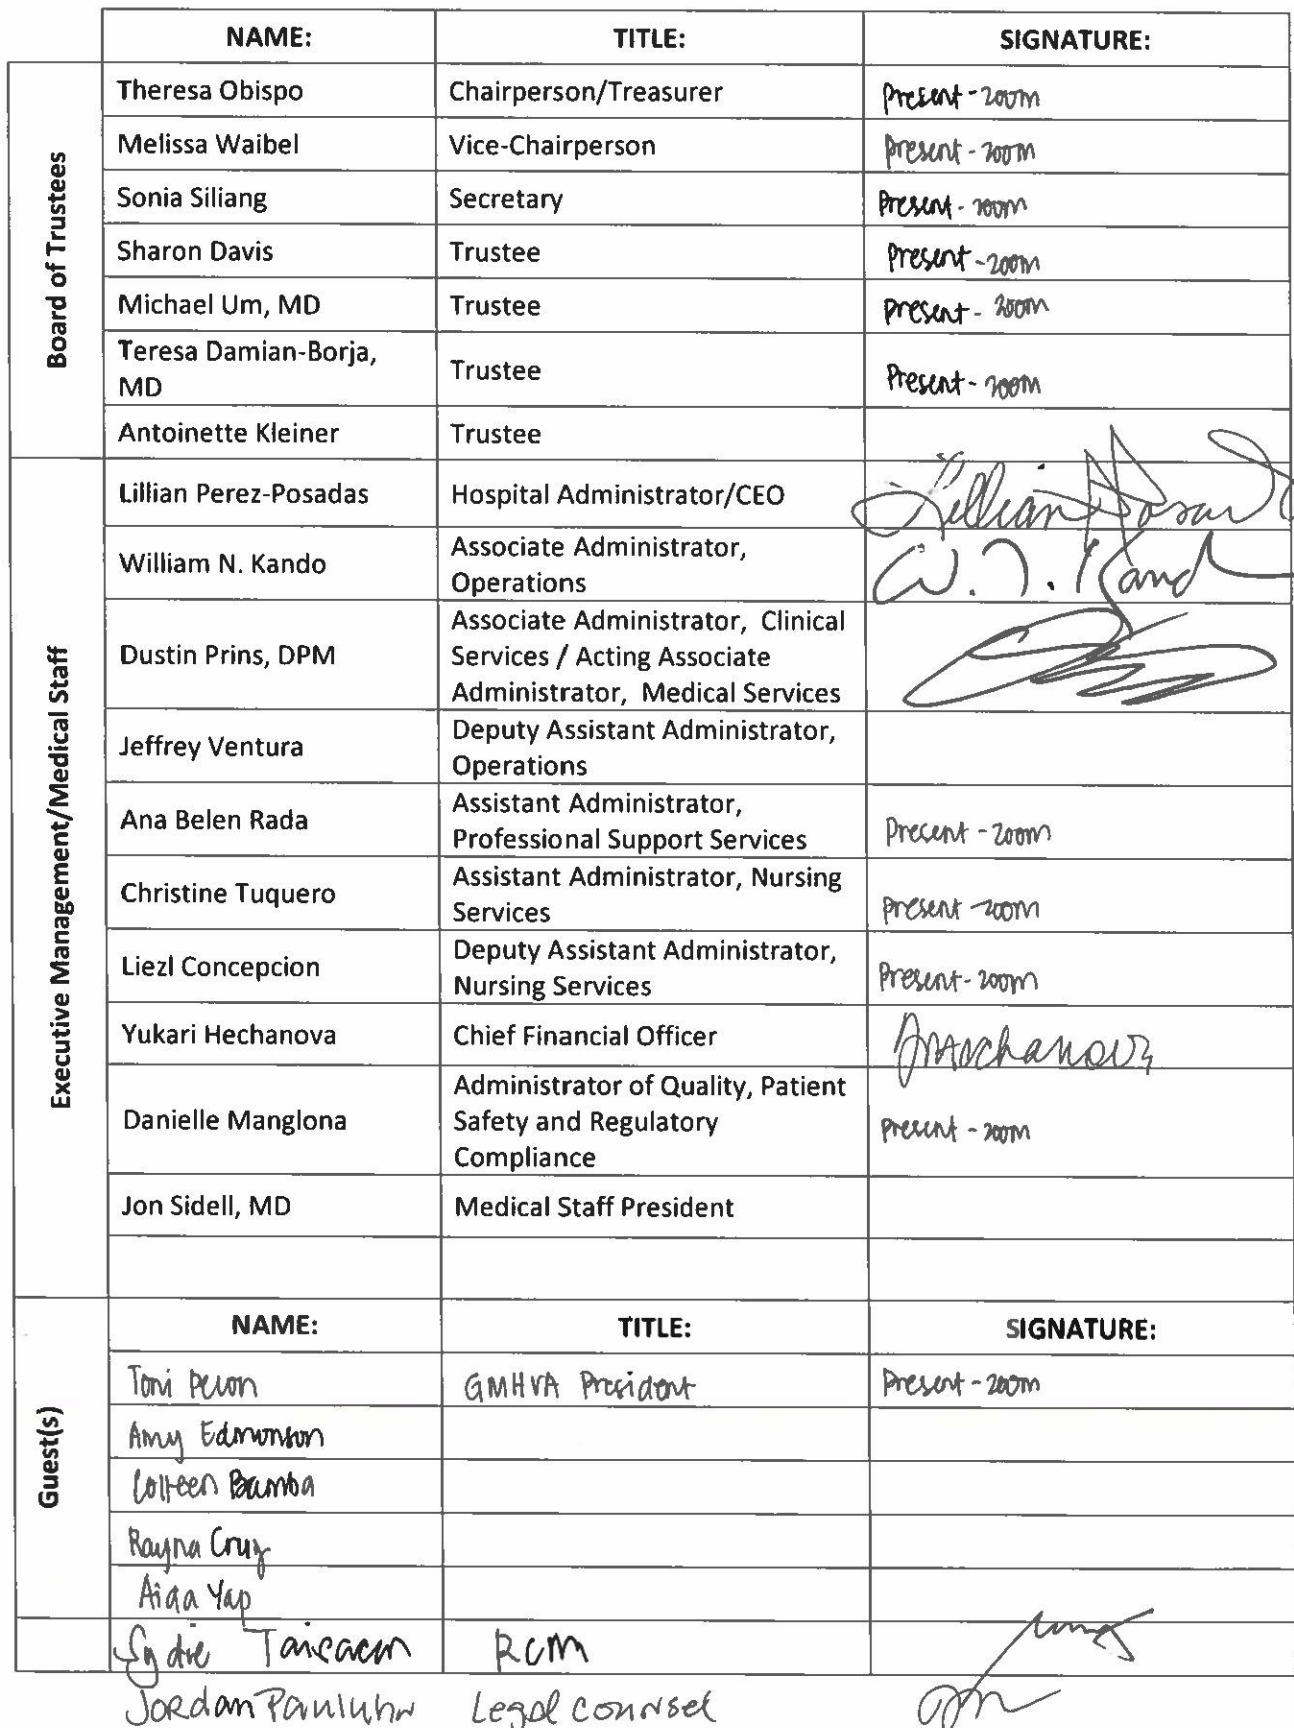 NAME: TITLE: SIGNATURE:
Board of Trustees
Theresa Obispo Chairperson/Treasurer Present - zoom
Melissa Waibel Vice-Chairperson Present - zoom
Sonia Siliang Secretary Present - zoom
Sharon Davis Trustee Present - zoom
Michael Um, MD Trustee Present - zoom
Teresa Damian-Borja,
MD Trustee Present - zoom
Antoinette Kleiner Trustee
Executive Management/Medical Staff
Lillian Perez-Posadas Hospital Administrator/CEO Lillian
William N. Kando Associate Administrator,
Operations W. N. Kand
Dustin Prins, DPM Associate Administrator, Clinical
Services / Acting Associate
Administrator, Medical Services
Jeffrey Ventura Deputy Assistant Administrator,
Operations
Ana Belen Rada Assistant Administrator,
Professional Support Services Present - zoom
Christine Tuquero Assistant Administrator, Nursing
Services Present - zoom
Liezl Concepcion Deputy Assistant Administrator,
Nursing Services Present - zoom
Yukari Hechanova Chief Financial Officer
Danielle Manglona Administrator of Quality, Patient
Safety and Regulatory
Compliance Present - zoom
Jon Sidell, MD Medical Staff President
NAME: TITLE: SIGNATURE:
Guest(s)
Toni GMHVA President Present - zoom
Amy Edmonson
Colleen Bamba
Rayna Cruz
Aida Yap
RCM
Jordan Pauluhn Legal counsel